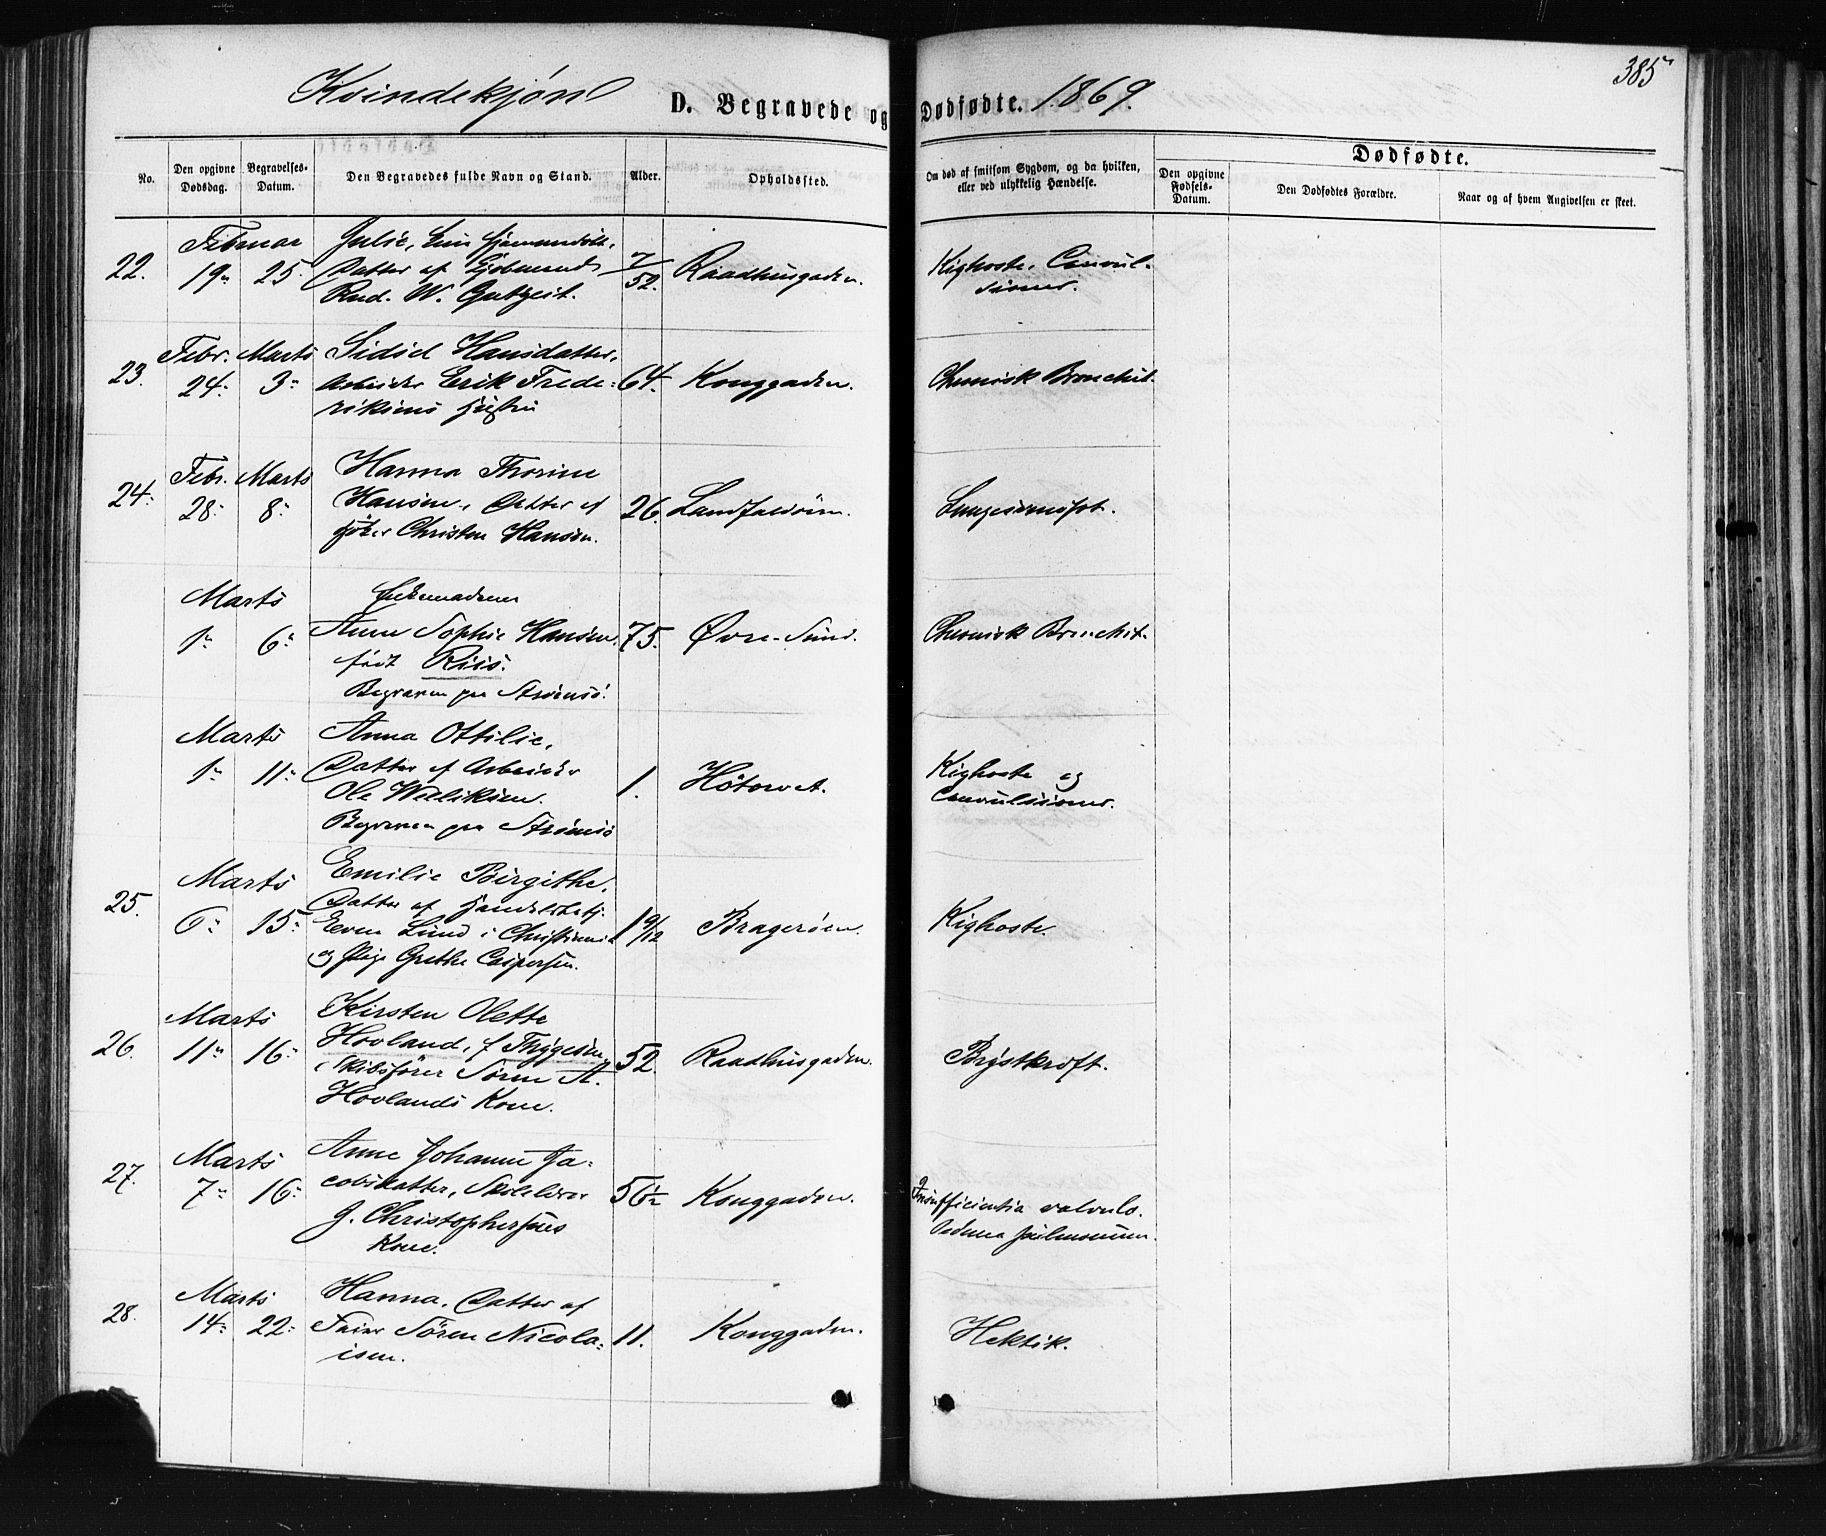 385
Kvindekjøn D. Begravede og Dødfødte. 1869.
No.
Den opgivne Dødsdag.
Begravelses-Datum.
Den Begravedes fulde Navn og Stand.
Alder.
Opholdssted.
Om død af smitsom Sygdom, og da hvilken,
eller ved ulykkelig Hændelse.
Dødfødte.
Den opgivne Fødsels-Datum.
Den Dødfødtes Forældre.
Naar og af hvem Angivelsen er skeet.
Februar Julie,
22. 19 25. Datter af 7/52. Raadhusgaden. Kighoste, Convul-
Rud. W. Gutzeit. sioner.
Febr. Marts Sidsel Hansdatter,
23. 24 3 Arbeider Erik Frede- 64. Konggaden. Chronisk Bronchit.
riksens
Febr. Marts Hanna Thorine
24. 28 8 Hansen, Datter af 26. Landfaldøen.
Christen Hansen.
Marts Enkemadame
1 6 Anne Sophie Hansen, 75. Øvre-Sund. Chronisk Bronchit.
født Riis.
Begraven paa Strømsø.
Marts Anna Ottilie,
1 11 Datter af Arbeider 1. Hötorvet. Kighoste og
Ole Convulsioner.
Begraven paa Strømsø
Marts Emilie Birgithe,
25. 6 15 Datter af Handelsbetj.
Even Lund i Christiania 1 9/12 Bragerøen. Kighoste.
og Pige Grethe Caspersen.
Marts Kirsten Olette
26. 11 16 Hovland, f. Thygesen, 52. Raadhusgaden. Brystkræft.
Skibsfører Sören A.
Hovlands Kone.
Marts Anne Johanne Ja-
27. 7 16 cobsdatter, Skolelærer 56 Konggaden. Insufficientia valvulo.
J. Christophersens Oedema pulmonum.
Kone.
Marts Hanna, Datter af
28. 14 22 Sören Nicola- 11. Konggaden. Hektik.
isen.